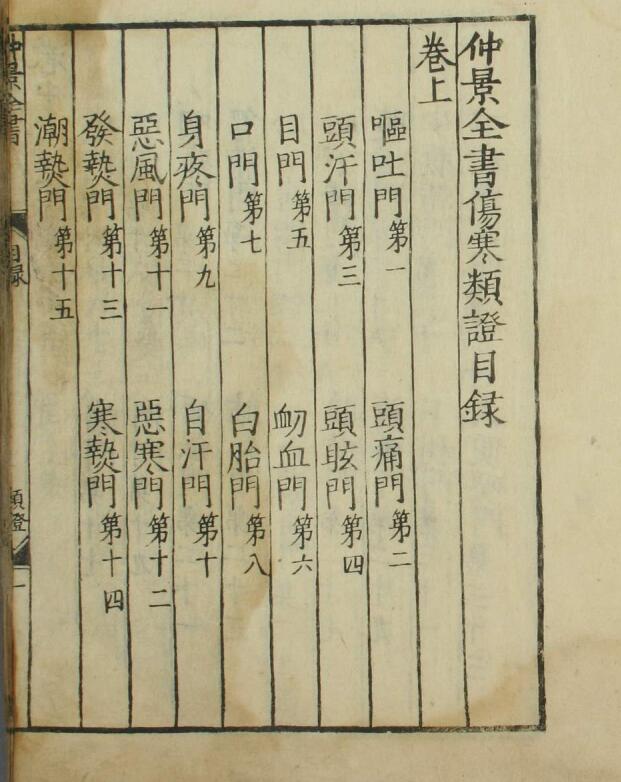 仲景全書傷寒類證目録
卷上
嘔吐門第一　頭痛門第二
頭汗門第三　頭眩門第四
目門第五　衂血門第六
口門第七　白胎門第八
身疼門第九　自汗門第十
惡風門第十一　惡寒門第十二
發熱門第十三　寒熱門第十四
潮熱門第十五
仲景全書　目録　類證　一